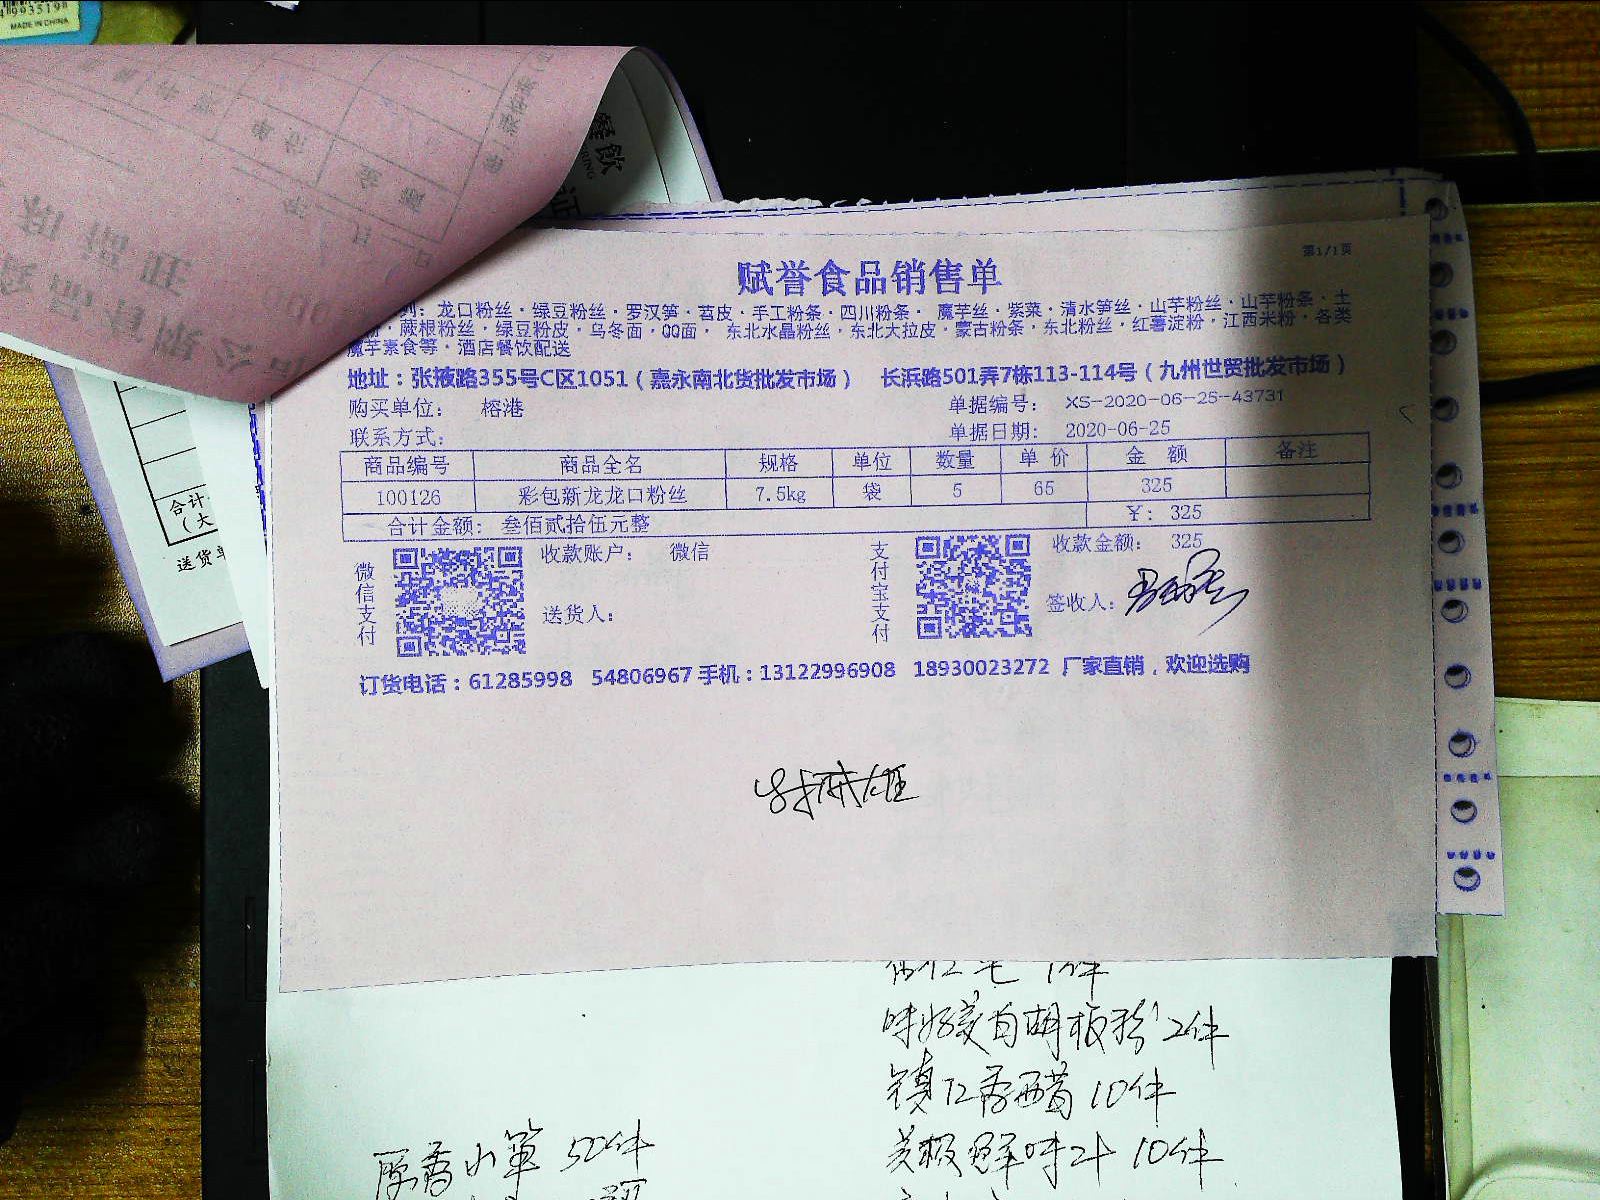 MADE IN CHINA
餐飲
证
第1/1页
赋誉食品销售单
列：龙口粉丝·绿豆粉丝·罗汉笋·苕皮·手工粉条·四川粉条· 魔芋丝·紫菜·清水笋丝·山芋粉丝·山芋粉条·土
粉·蕨根粉丝·绿豆粉皮·乌冬面·QQ面· 东北水晶粉丝·东北大拉皮·蒙古粉条·东北粉丝·红薯淀粉·江西米粉·各类
魔芋素食等·酒店餐饮配送
地址：张掖路355号C区1051（嘉永南北货批发市场） 长浜路501弄7栋113-114号（九州世贸批发市场）
购买单位： 榕港 单据编号： XS-2020-06-25-43731
联系方式： 单据日期： 2020-06-25
商品编号 商品全名 规格 单位 数量 单 价 金 额 备注
100126 彩包新龙龙口粉丝 7.5kg 袋 5 65 325
合计金额： 叁佰贰拾伍元整 ￥：325
微信支付 收款账户： 微信 支付宝支付 收款金额： 325
送货人： 签收人：
订货电话：61285998 54806967 手机：13122996908 18930023272 厂家直销，欢迎选购
合计
（大
送货单
味好美白胡椒粉 2件
镇江香醋 10件
美极鲜味汁 10件
原香小笋 50件